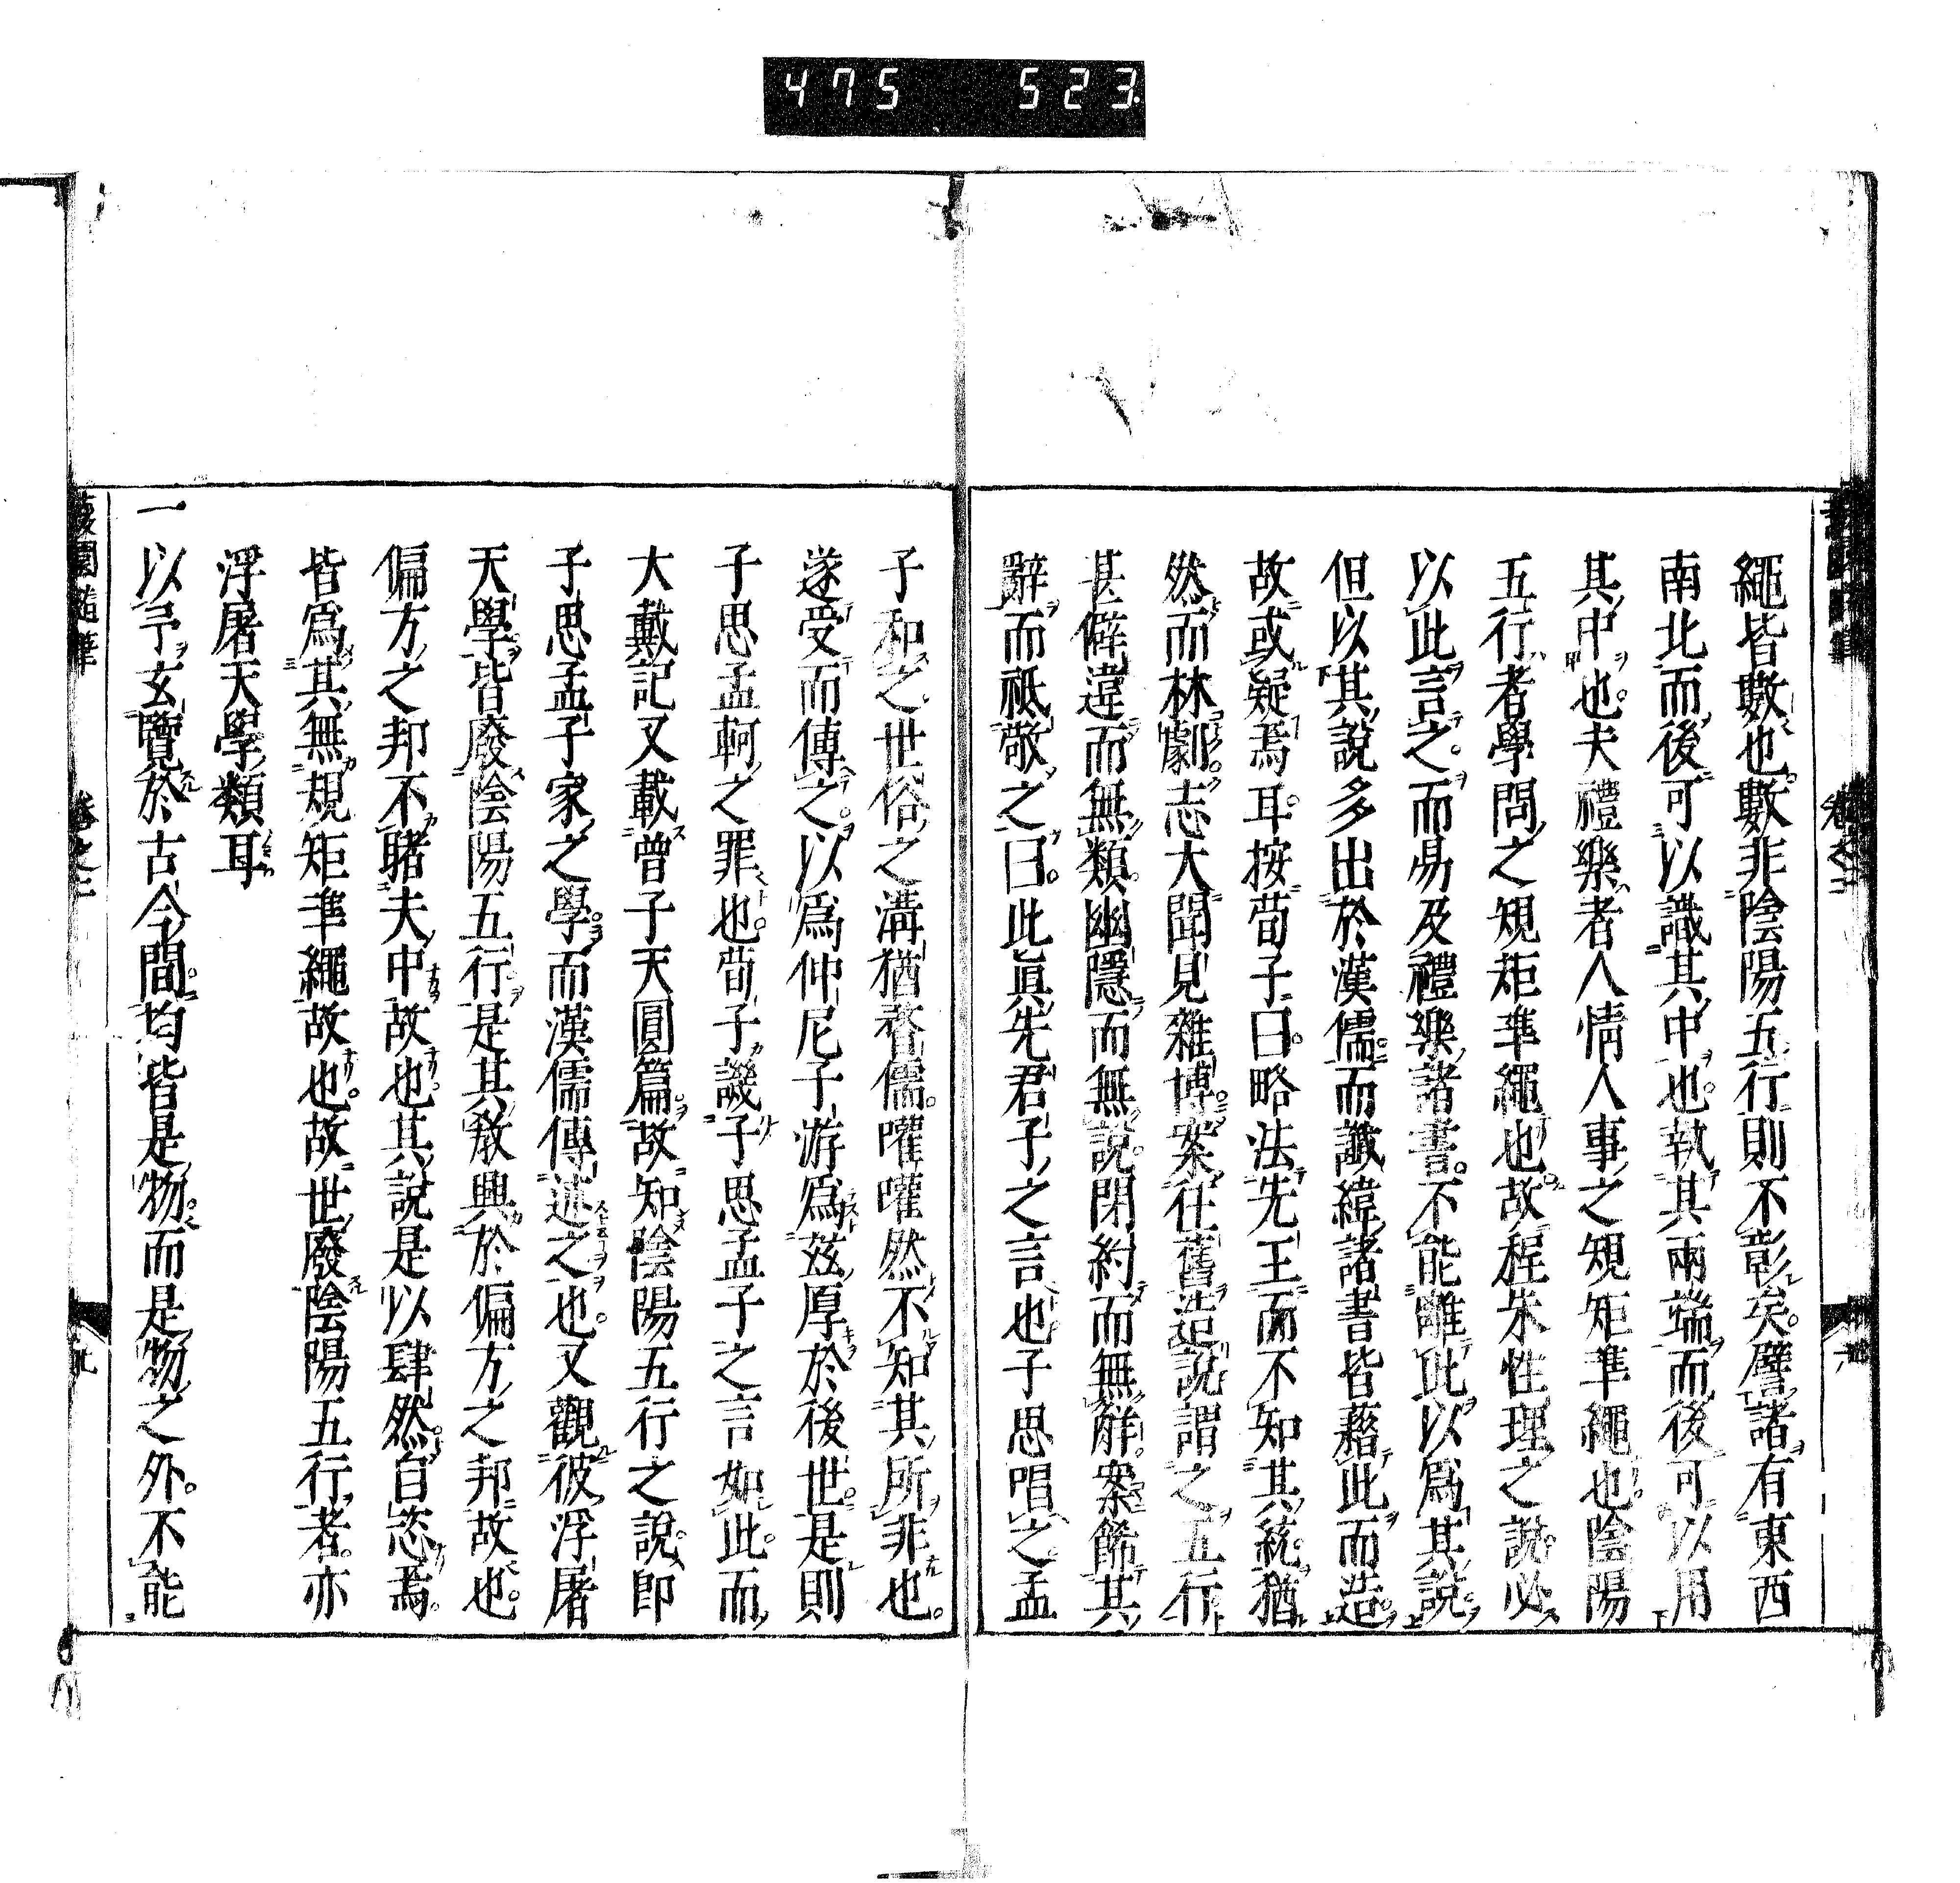 475 523
繩皆數也數非陰陽五行則不彰矣譬諸有東西
南北而後可以識其中也執其兩端而後可以用
其中也夫禮樂者人情人事之規矩準繩也陰陽
五行者學問之規矩準繩也故程朱性理之說必
以此言之而易及禮樂諸書不能離此以爲其說
但以其說多出於漢儒而讖緯諸書皆藉此而造
故或疑焉耳按荀子曰略法先王而不知其統猶
然而林劇志大聞見雜博案往舊造說謂之五行
甚僻違而無類幽隱而無說閉約而無解案餙其
辭而祗敬之曰此眞先君子之言也子思唱之孟
子和之世俗之溝猶瞀儒嚾嚾然不知其所非也
遂受而傳之以爲仲尼子游爲茲厚於後世是則
子思孟軻之罪也荀子譏子思孟子之言如此而
大戴記又載曾子天圓篇故知陰陽五行之說卽
子思孟子家之學而漢儒傳述之也又觀彼浮屠
天學皆廢陰陽五行是其敎興於偏方之邦故也
偏方之邦不睹夫中故也其說是以肆然自恣焉
皆爲其無規矩準繩故也故世廢陰陽五行者亦
浮屠天學類耳
一以予玄覽於古今間均皆是物而是物之外不能
蘐園隨筆 卷之二 九